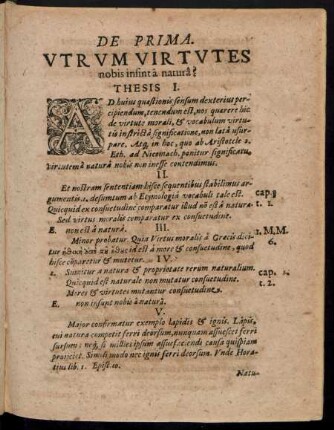 DE PRIMA.
VTRVM VIRTVTES
nobis insint à naturâ?
THESIS I.
AD huius quæstionis sensum dexterius per-
cipiendum, tenendum est, nos quærere hic
de virtute morali, & vocabulum virtu-
tis in strictâ significatione, non latâ usur-
pare. Atq, in hoc, quo ab Aristotele 2.
Eth. ad Nicomach. ponitur significatu,
virtutem à naturâ nobis non inesse contendimus.
II.
Et nostram sententiam hisce sequentibus stabilimus ar-
gumentis. 1. desumtum ab Etymologiâ vocabuli tale est. cap. 1
Quicquid ex consuetudine comparatur illud nō est à natura. t. 1.
Sed virtus moralis comparatur ex consuetudine.
E. non est à naturâ. III. 1. M.M.
Minor probatur. Quia Virtus moralis à Græcis dici- 6.
tur ἠθικὴ ἀπὸ τῦ ἤθους id est à more & consuetudine, quod
hisce comparetur & mutetur. IV.
2. Sumitur a natura & proprietate rerum naturalium. cap. 1.
Quicquid est naturale non mutatur consuetudine. t. 2.
Mores & virtutes mutantur consuetudine.
E. non insunt nobis à naturâ.
V.
Major confirmatur exemplo lapidis & ignis. Lapis,
cui natura competit ferri deorsum, nunquam assuescet ferri
sursum: neq, si millies ipsum assuefaciendi causa quispiam
projiciet. Simili modo nec ignis ferri deorsum. Vnde Hora-
tius lib. 1. Epist. 10.
Natu-